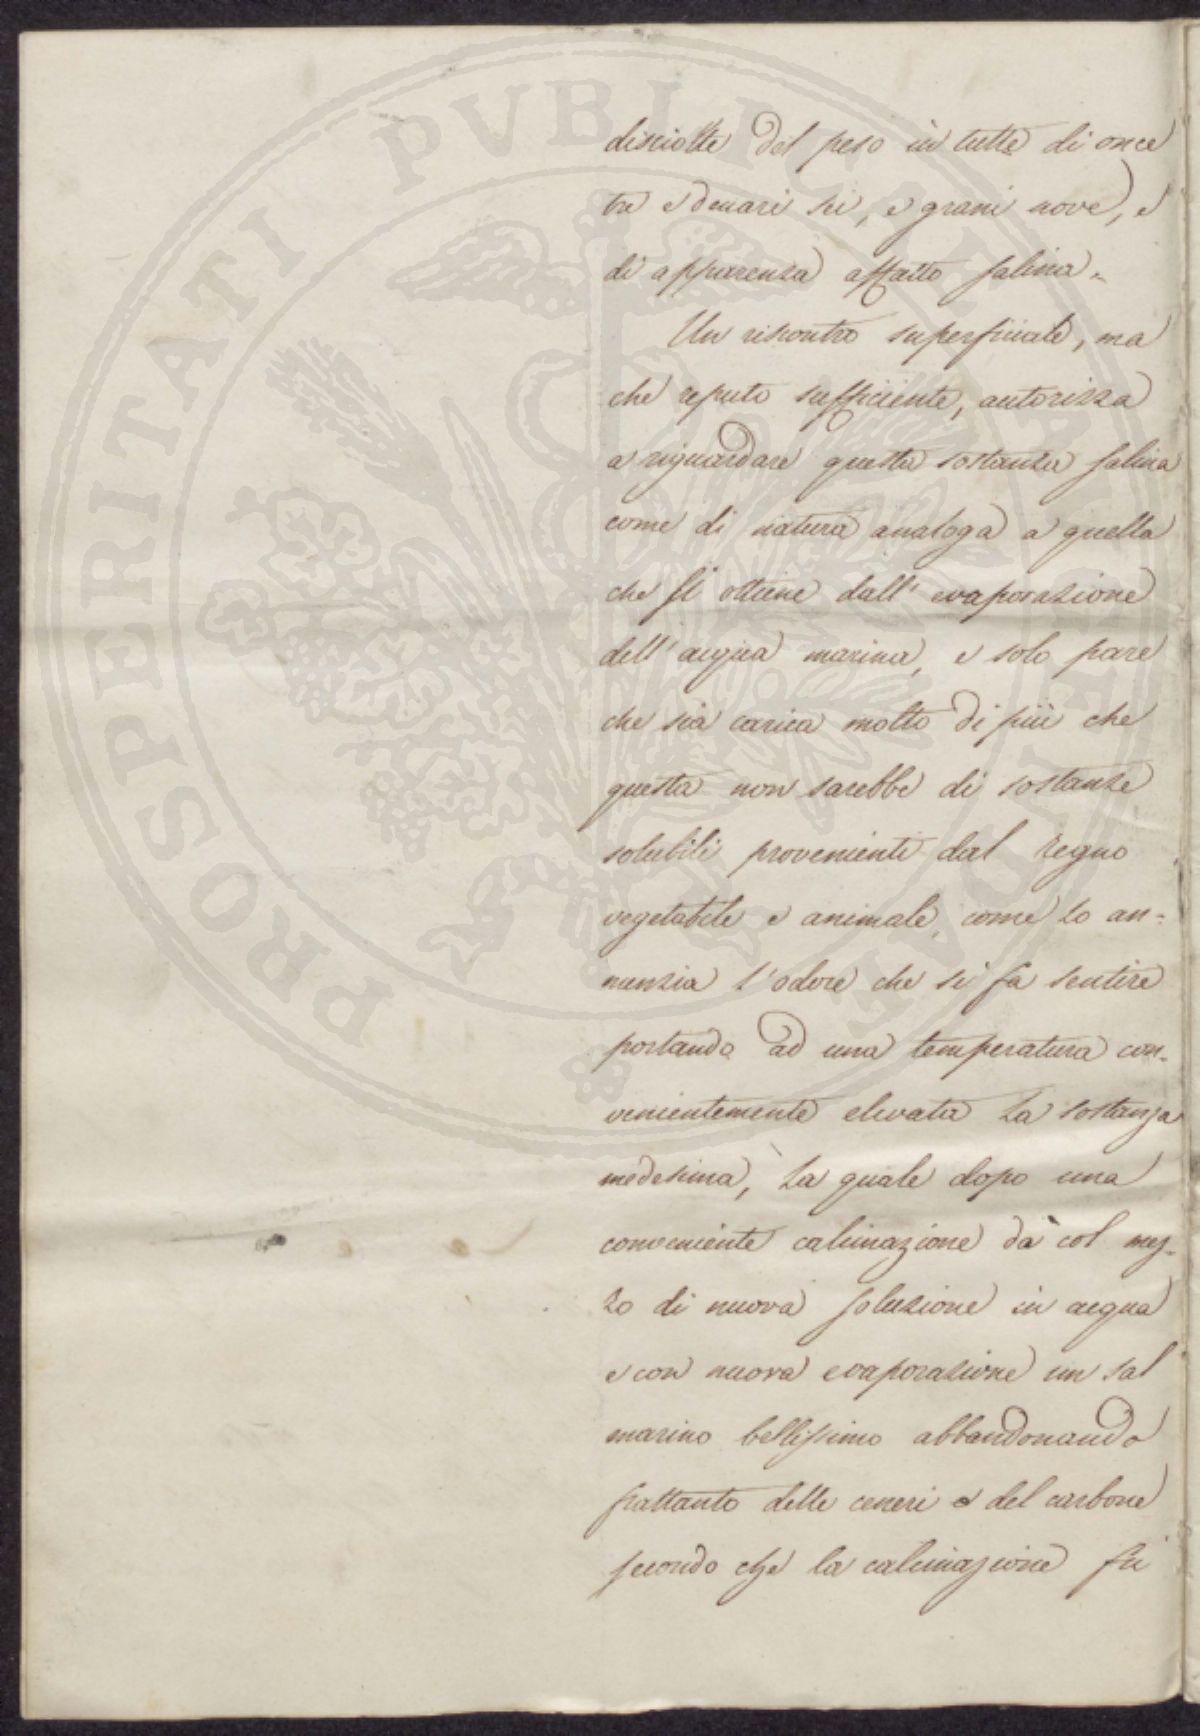 disciolte del peso in tutte di once
tre e denari sei, e grani nove, e
di apparenza affatto salina.
Un riscontro superficiale, ma
che reputo sufficiente, autorizza
a riguardare questa sostanza salina
come di natura analoga a quella
che si ottiene dall' evaporazione
dell' acqua marina, e solo pare
che sia carica molto di più che
questa non sarebbe di sostanze
solubili provenienti dal regno
vegetabile e animale, come lo an=
nunzia l'odore che si fa sentire
portando ad una temperatura con=
venientemente elevata la sostanza
medesima, la quale dopo una
conveniente calcinazione dà col mez=
zo di nuova soluzione in acqua
e con nuova evaporazione un sal
marino bellissimo abbandonando
frattanto delle ceneri e del carbone
secondo che la calcinazione fu
PROSPERITATI PVBLICAE AVGENDAE